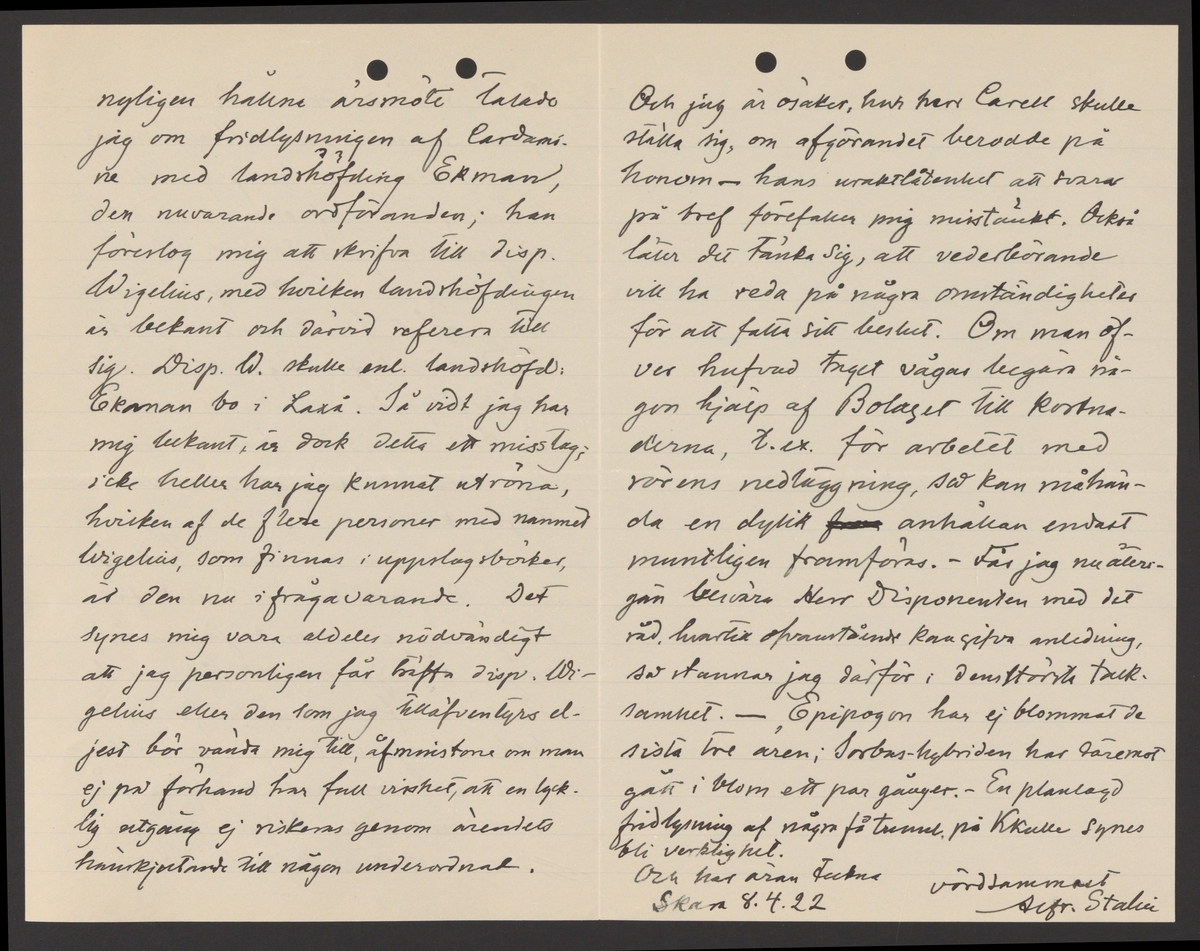 nyligen hållna årsmöte talade
jag om fridlysningen af Cardami-
ne med landshöfding Ekman,
den nuvarande ordföranden; han
föreslog mig att skrifva till disp.
Wigelius, med hvilken landshöfdingen
är bekant och därvid referera till
sig. Disp. W. skulle enl. landshöfd:
Ekman bo i Laxå. Så vidt jag har
mig bekant, är dock detta ett misstag;
icke heller har jag kunnat utröna,
hvilken af de flere personer med namnet
Wigelius, som finnas i uppslagsböcker,
är den nu ifrågavarande. Det
synes mig vara aldeles nödvändigt
att jag personligen får träffa disp. Wi-
gelius eller den som jag tilläfventyrs el-
jest bör vända mig till, åtminstone om man
ej på förhand har full visshet, att en lyck-
lig utgång ej riskeras genom ärendets
hänskjutande till någon underordnad.
Och jag är osäker, hur herr Carell skulle
ställa sig, om afgörandet berodde på
honom — hans uraktlåtenhet att svara
på bref förefaller mig misstänkt. Också
låter det tänka sig, att vederbörande
vill ha reda på några omständigheter
för att fatta sitt beslut. Om man öf-
ver hufvud taget vågar begära nå-
gon hjälp af Bolaget till kostna-
derna, t.ex. för arbetet med
rörens nedläggning, så kan måhän-
da en dylik anhållan endast
muntligen framföras. - Får jag nu återi-
gän besvära Herr Disponenten med det
råd, hvartill ofvanstående kan gifva anledning,
så stannar jag därför i den största tack-
samhet. — Epipogon har ej blommat de
sista tre åren; Sorbus-hybriden har däremot
gått i blom ett par gånger. - En planlagd
fridlysning af några få tunnl. på Kkulle synes
bli verklighet.
Och har äran teckna
vördsammast
Skara 8.4.22
Alfr. Stalin